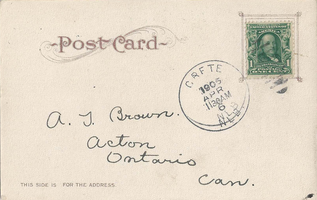 Post Card
CRETE
1905
APR
6
1130AM
NEB
A. T. Brown.
Acton
Ontario
Can.
THIS SIDE IS FOR THE ADDRESS.